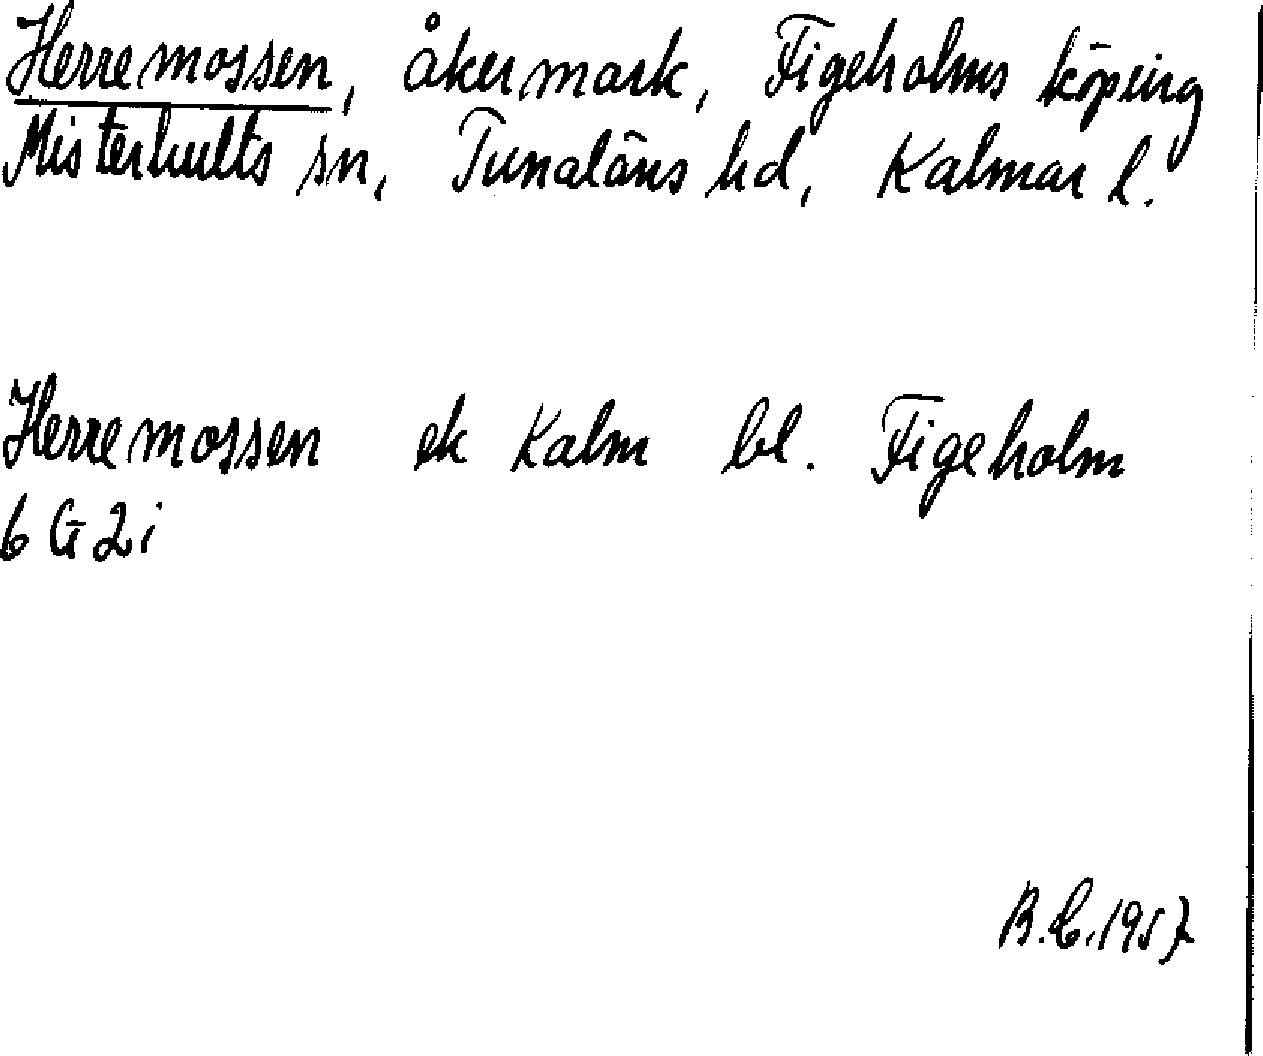 Herremossen, åkermark, Figeholms köping
Misterhults sn, Tunaläns hd, Kalmar l.
Herremossen ek Kalm bl. Figeholm
6 G 2 i
B.C. 1957